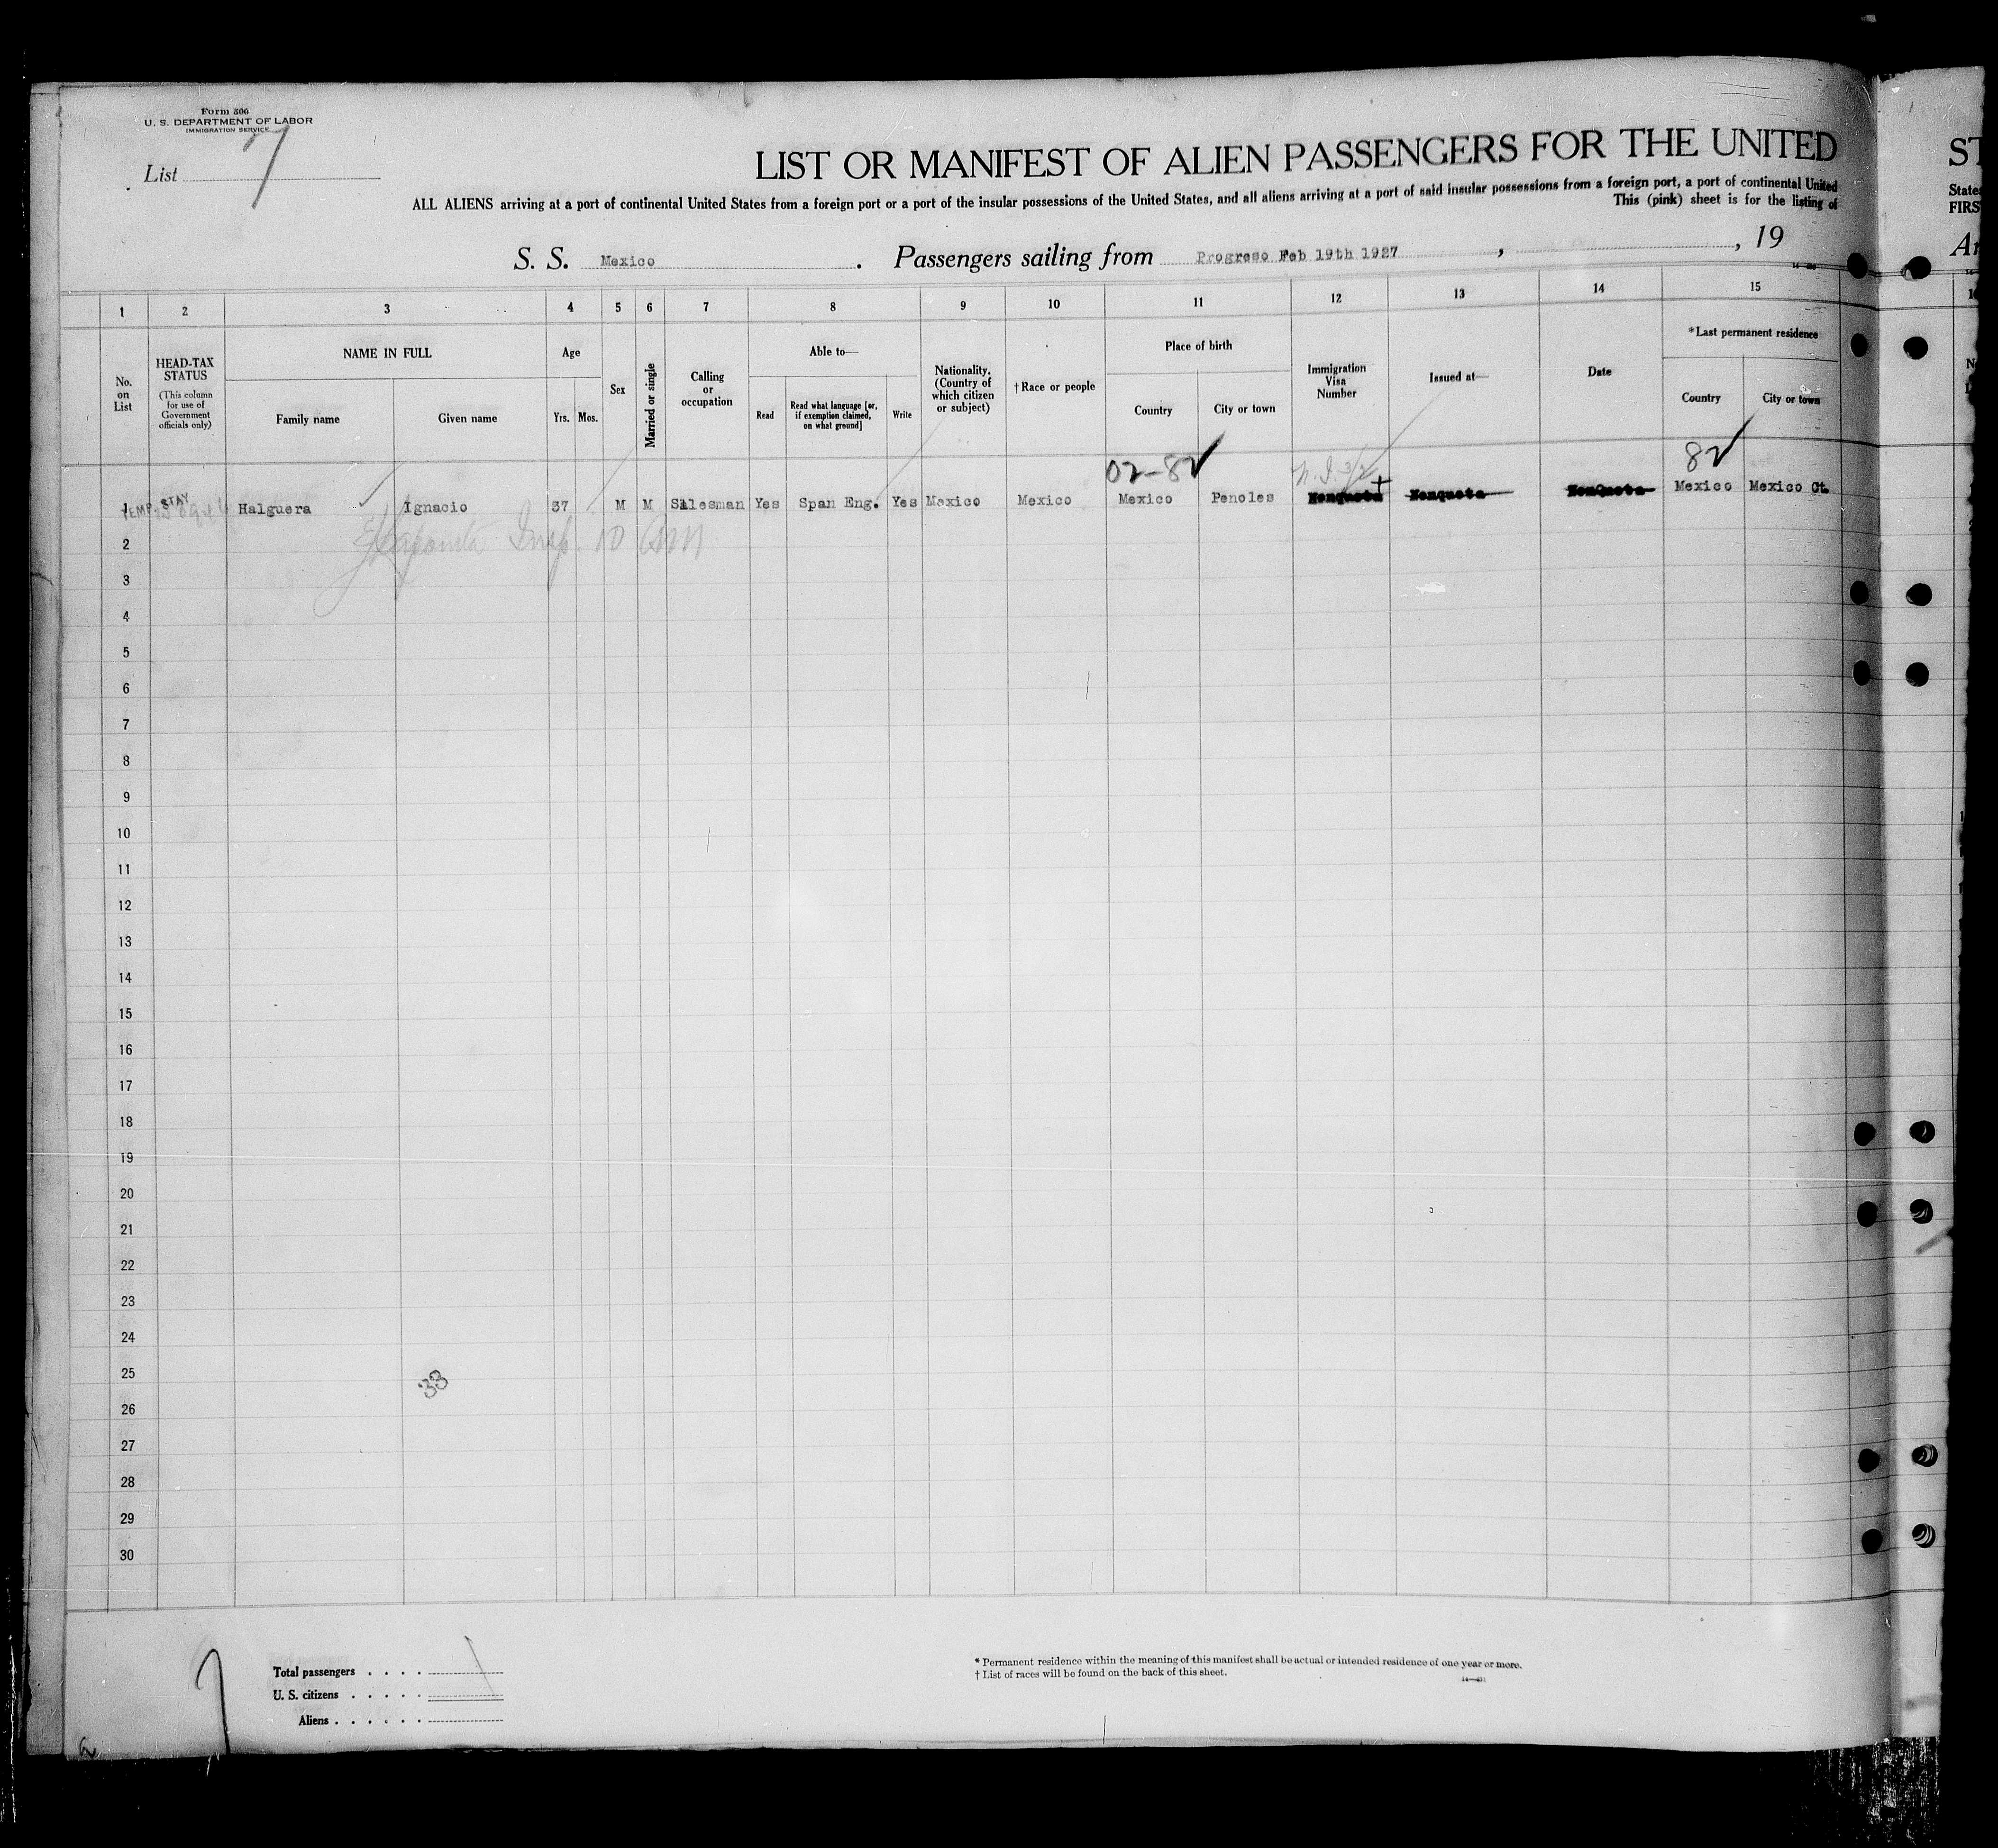 Form 506
U. S. DEPARTMENT OF LABOR
IMMIGRATION SERVICE
List 7
LIST OR MANIFEST OF ALIEN PASSENGERS FOR THE UNITED
ALL ALIENS arriving at a port of continental United States from a foreign port or a port of the insular possessions of the United States, and all aliens arriving at a port of said insular possessions from a foreign port, a port of continental United
This (pink) sheet is for the listing of
S. S. Mexico . Passengers sailing from Progreso Feb 19th 1927 , , 19
ST
States
FIRS
Ar
1 2 3 4 5 6 7 8 9 10 11 12 13 14 15
No. on List
HEAD-TAX STATUS
(This column for use of Government officials only)
NAME IN FULL
Family name
Given name
Age
Yrs.
Mos.
Sex
Married or single
Calling or occupation
Able to—
Read
Read what language [or, if exemption claimed, on what ground]
Write
Nationality. (Country of which citizen or subject)
† Race or people
Place of birth
Country
City or town
Immigration Visa Number
Issued at—
Date
*Last permanent residence
Country
City or town
02-82
82
1 TEMP. STAY Halguera Ignacio 37 M M Salesman Yes Span Eng. Yes Mexico Mexico Mexico Penoles Nonquota Nonquota NonQuota Mexico Mexico Ct.
2
Insp. 10 AM
3
4
5
6
7
8
9
10
11
12
13
14
15
16
17
18
19
20
21
22
23
24
25
33
26
27
28
29
30
7
Total passengers . . . . 1
U. S. citizens . . . . .
Aliens . . . . . .
* Permanent residence within the meaning of this manifest shall be actual or intended residence of one year or more.
† List of races will be found on the back of this sheet.